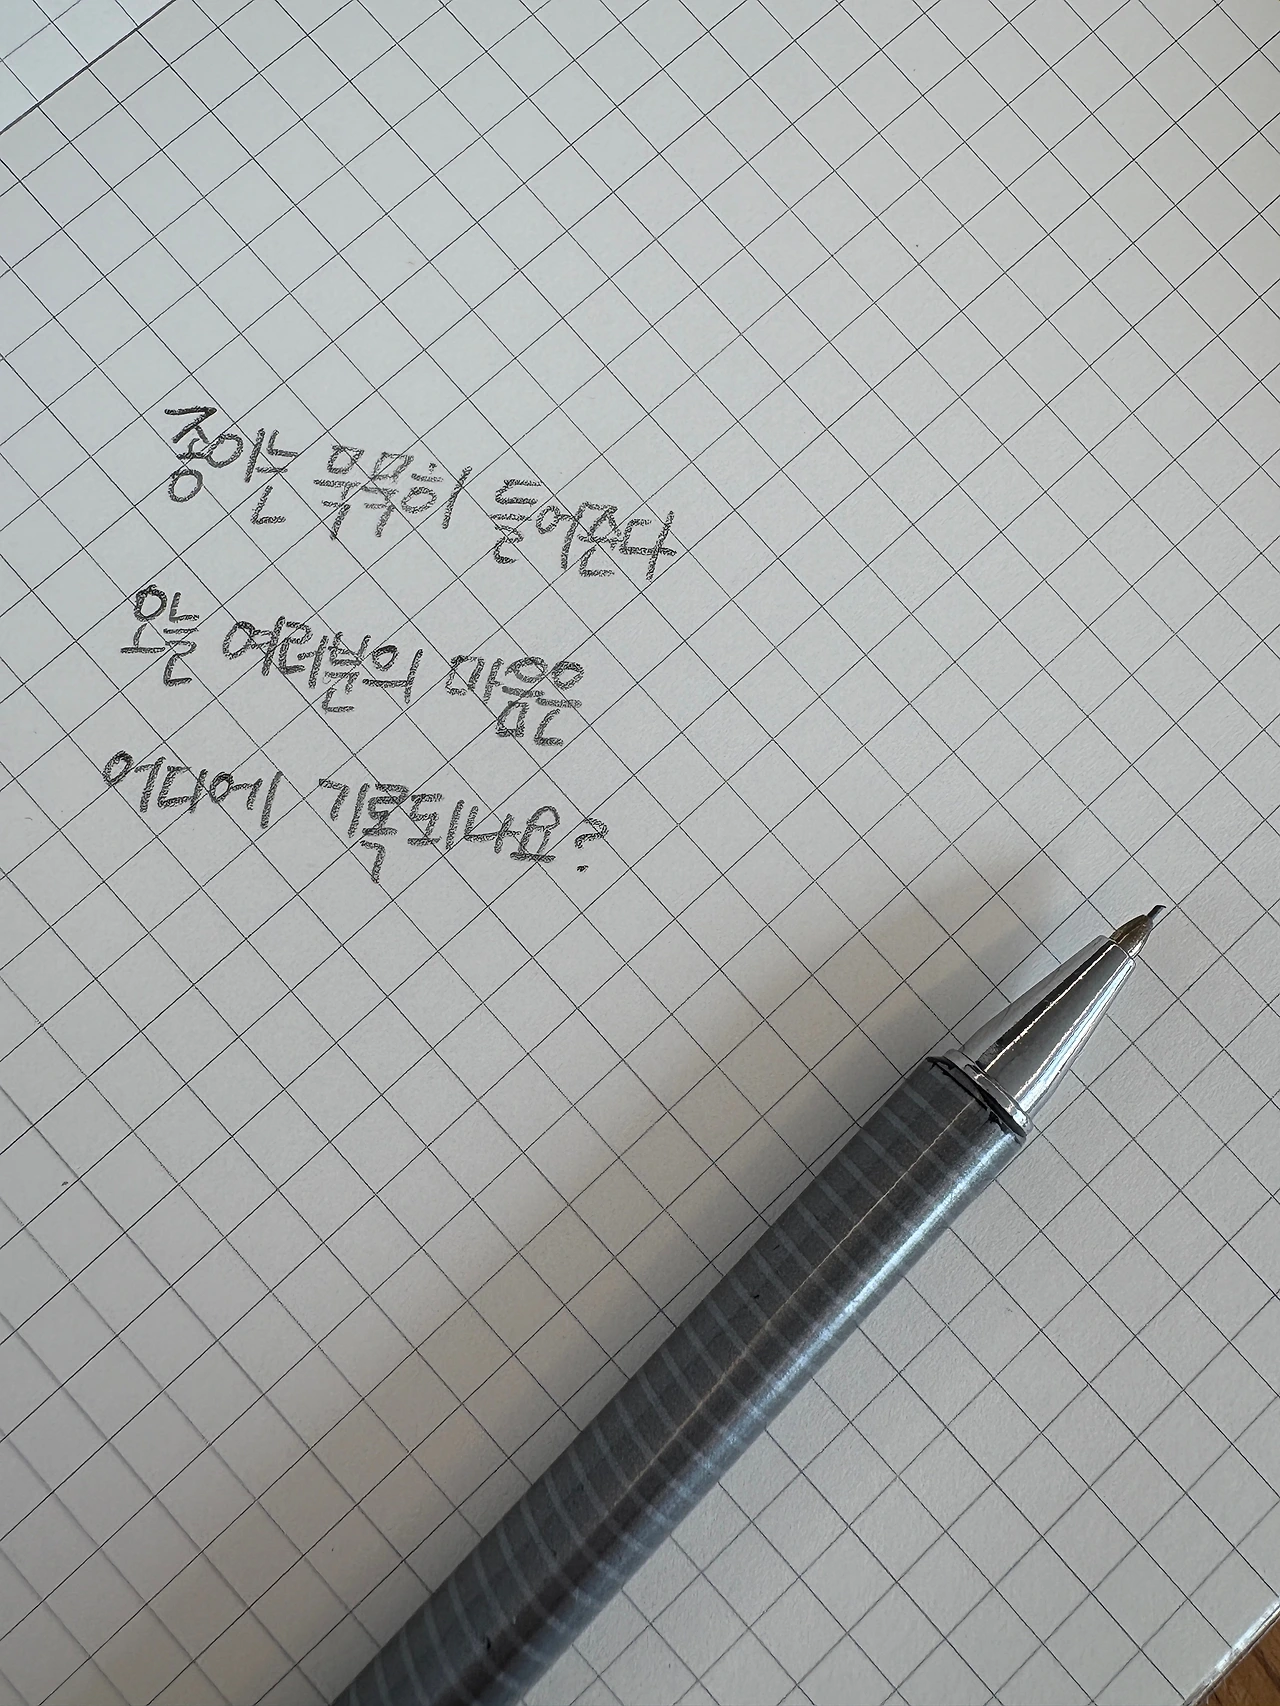 종이는 묵묵히 들어준다
오늘 여러분의 마음은
어디에 기록되나요?